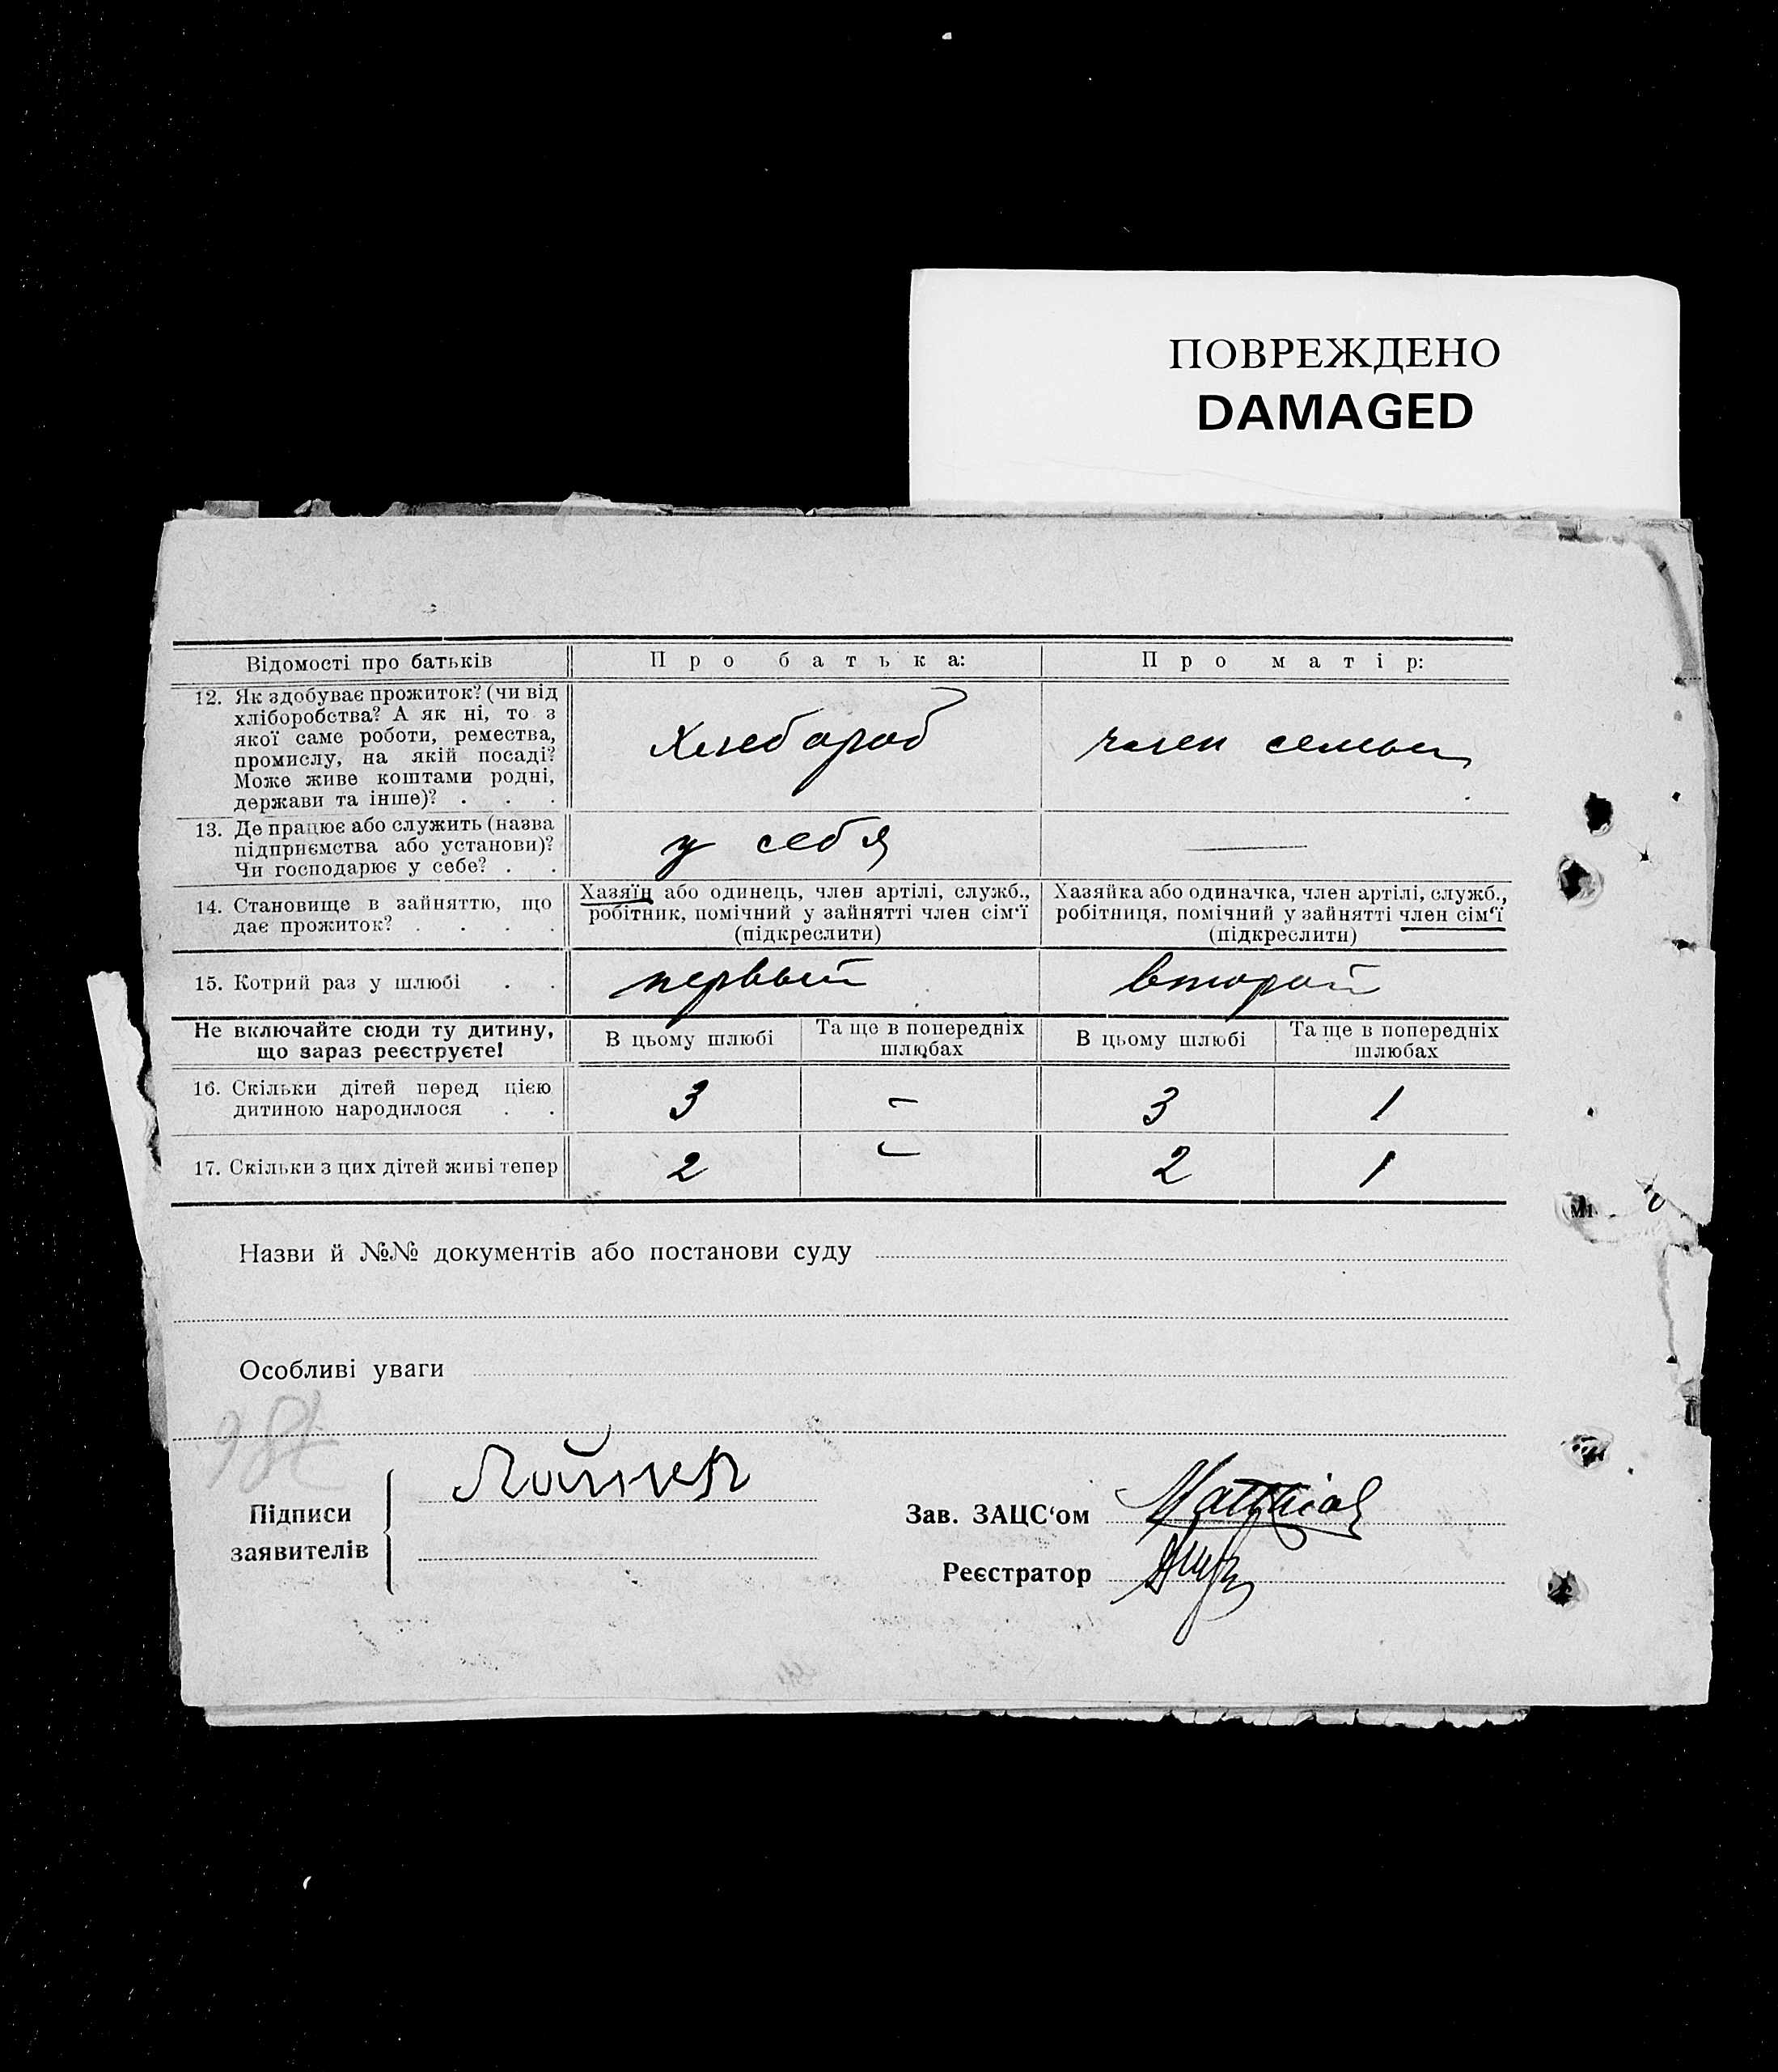 ПОВРЕЖДЕНО
DAMAGED
Відомості про батьків
Про батька:
Про матір:
12. Як здобуває прожиток? (чи від
хліборобства? А як ні, то з
якої саме роботи, ремества,
промислу, на якій посаді?
Може живе коштами родні,
держави та інше)? . . .
Хлебороб
член семьи
13. Де працює або служить (назва
підприємства або установи)?
Чи господарює у себе? . .
у себя
14. Становище в зайняттю, що
дає прожиток? . . . .
Хазяїн або одинець, член артілі, служб.,
робітник, помічний у зайнятті член сім'ї
(підкреслити)
Хазяйка або одиначка, член артілі, служб.,
робітниця, помічний у зайнятті член сім'ї
(підкреслити)
15. Котрий раз у шлюбі . .
первый
второй
Не включайте сюди ту дитину,
що зараз реєструєте!
В цьому шлюбі
Та ще в попередніх
шлюбах
В цьому шлюбі
Та ще в попередніх
шлюбах
16. Скільки дітей перед цією
дитиною народилося . .
3
–
3
1
17. Скільки з цих дітей живі тепер
2
–
2
1
Назви й №№ документів або постанови суду
Особливі уваги
Підписи
заявителів
Зав. ЗАЦС'ом
Реєстратор